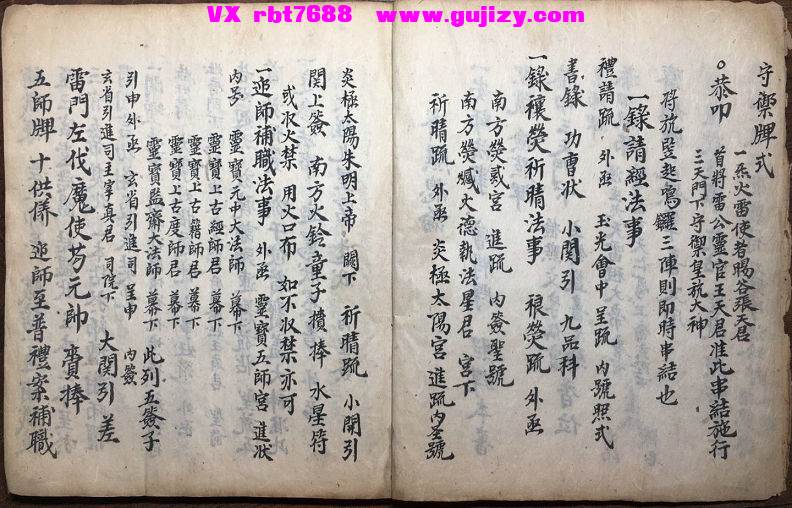 VX rbt7688 www.gujizy.com
守禦牌式
一炁火雷使者暘谷張天君
○恭叩 首將雷公靈官王天君准此串結施行
三天門下守禦皇旂大神
將旂豎起鳴鑼三陣則即時串結也
一錄請經法事
禮請疏 外函 玉光會中 呈疏 內號照式
書錄 功曹狀 小関引 九品科
一錄禳熒祈晴法事 禳熒疏 外函
南方熒惑宮 進疏 內簽聖號
南方熒惑文德執法星君 宮下
祈晴疏 外函 炎極太陽宮進疏內圣號
炎極太陽朱明上帝 闕下 祈晴疏 小関引
関上簽 南方火鈴童子賫捧 水星符
或収火禁 用火口布 如不収禁亦可
一迎師補職法事 外函 靈寶五師宮 進狀
內号 靈寶元中大法師 幕下
靈寶上古經師君 幕下
靈寶上古籍師君 幕下
靈寶上古度師君 幕下
靈寶監齋大法師 幕下 此列五簽子
引申外函 玄省引進司 呈申 內簽
玄省引進司主宰真君 司院下 大関引 差
雷門左伐魔使苟元帥 賫捧
五師牌 十供儀 迎師至普禮案補職